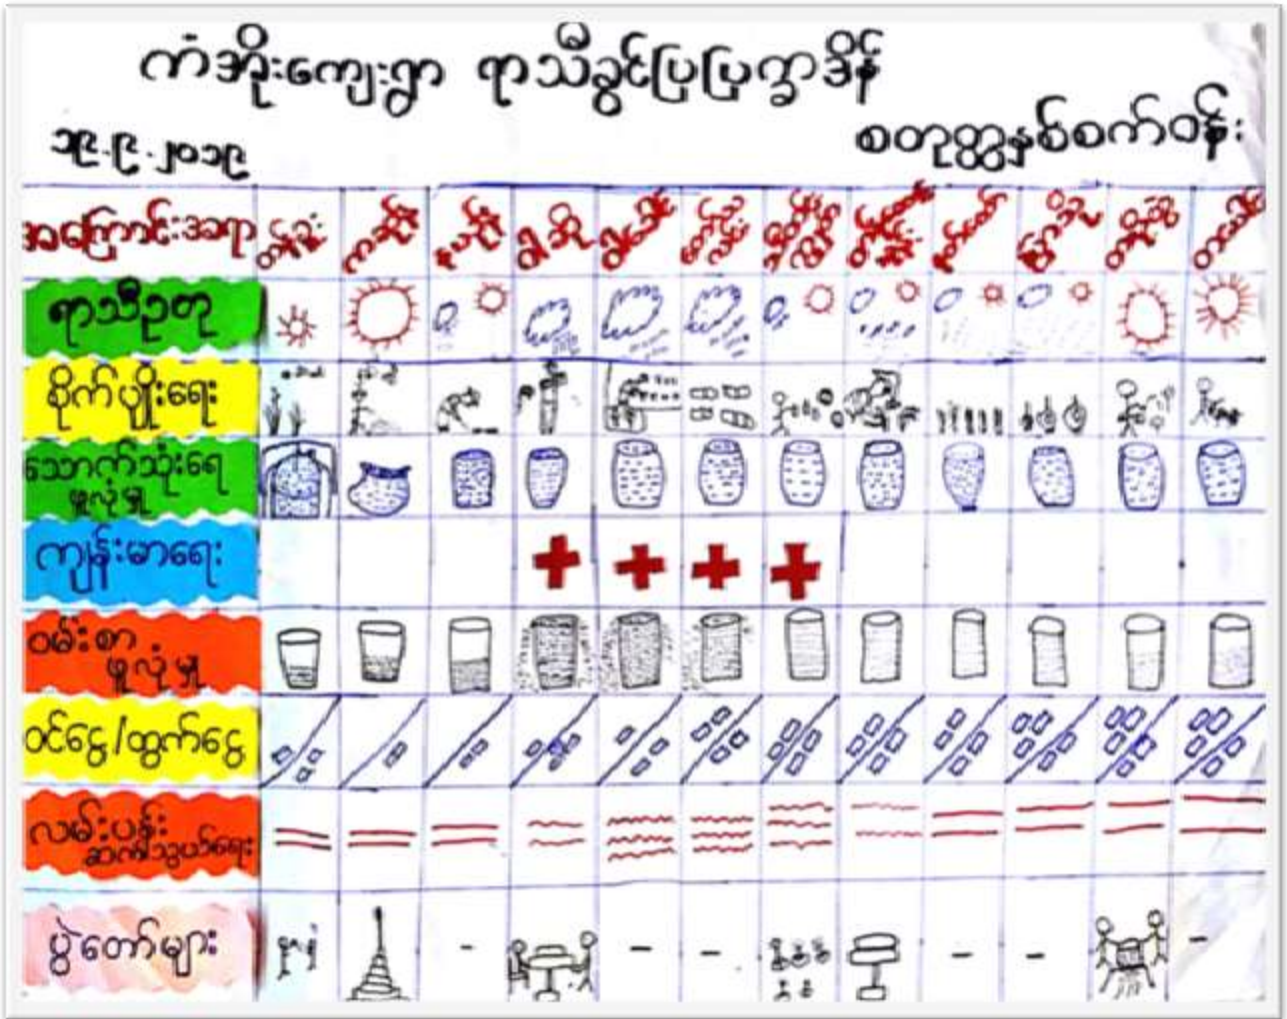 ကံအိုးကျေးရွာ ရာသီခွင်ပြပြက္ခဒိန်
စတုတ္ထနှစ်စက်ဝန်း
၁၉.၉.၂၀၁၉
အကြောင်းအရာ တန်ခူး ကဆုန် နယုန် ဝါဆို ဝါခေါင် တော်သလင်း သီတင်းကျွတ် တန်ဆောင်မုန်း နတ်တော် ပြာသို တပို့တွဲ တပေါင်း
ရာသီဥတု
စိုက်ပျိုးရေး
သောက်သုံးရေ
ဖူလုံမှု
ကျန်းမာရေး
ဝမ်းစာ
ဖူလုံမှု
ဝင်ငွေ/ထွက်ငွေ
လမ်းပန်း
ဆက်သွယ်ရေး
ပွဲတော်များ